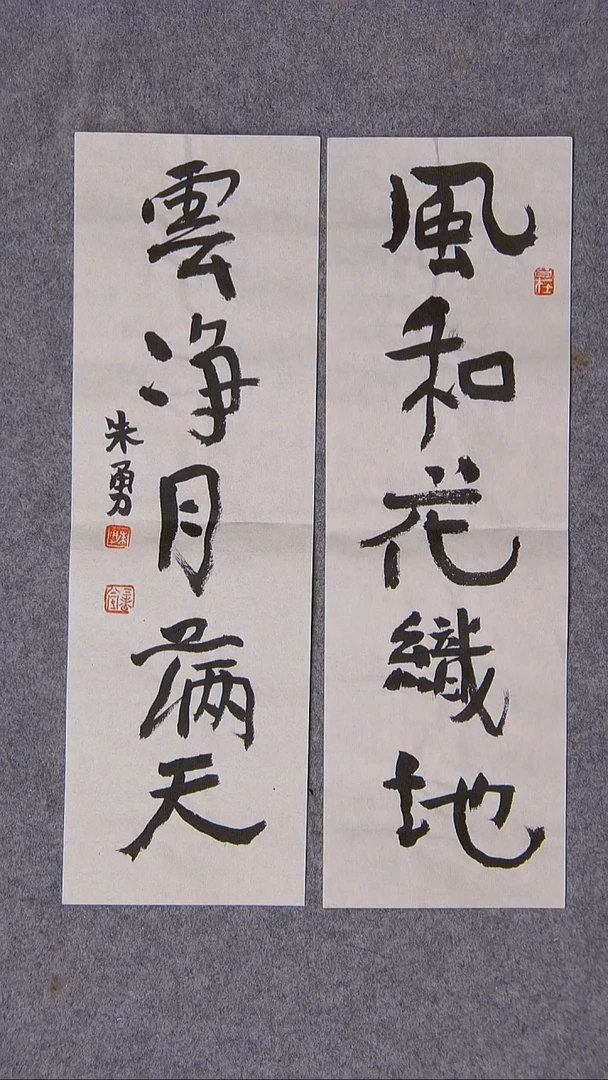 風和花織地
雲净月满天
朱勇